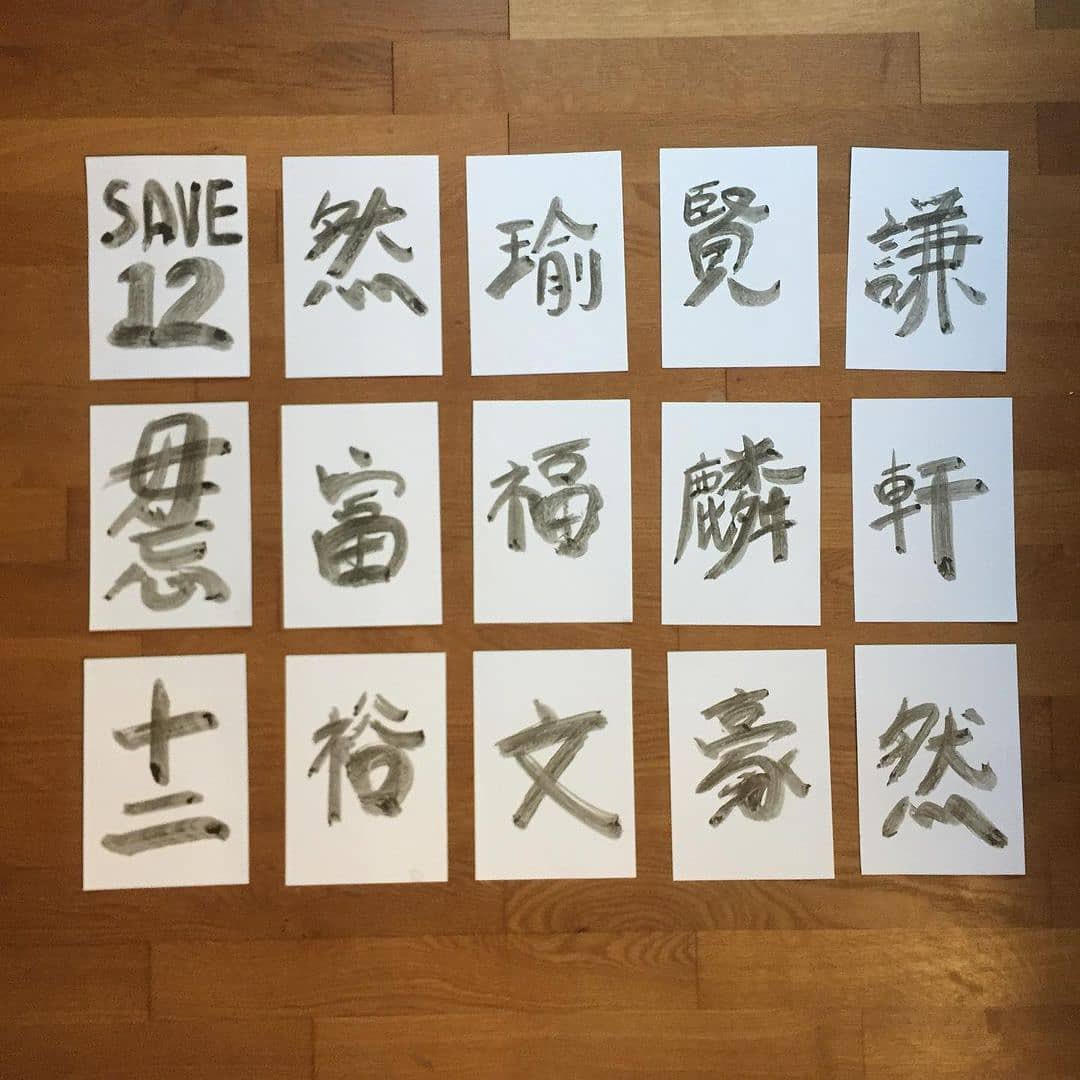 SAVE 然 瑜 賢 謙
12
毋忘 富 福 麟 軒
十二 裕 文 豪 然